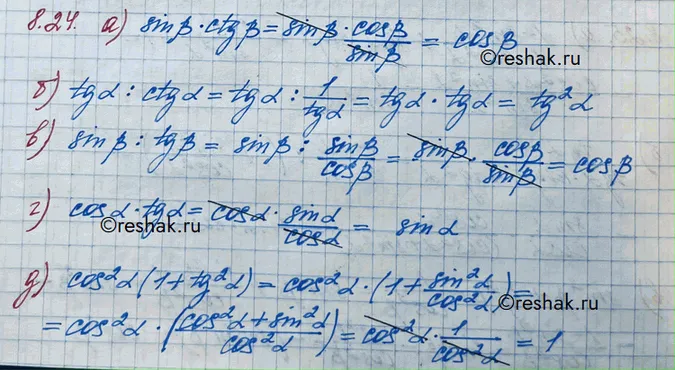 8.24. а) sinβ · ctgβ = sinβ · cosβ/sinβ = cosβ
©reshak.ru
б) tgα : ctgα = tgα : 1/tgα = tgα · tgα = tg²α
в) sinβ : tgβ = sinβ : sinβ/cosβ = sinβ · cosβ/sinβ = cosβ
г) cosα · tgα = cosα · sinα/cosα = sinα
©reshak.ru
д) cos²α (1 + tg²α) = cos²α · (1 + sin²α/cos²α) =
©reshak.ru
= cos²α · (cos²α + sin²α/cos²α) = cos²α · 1/cos²α = 1